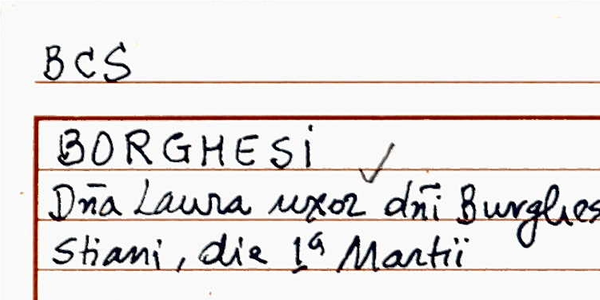 BCS
BORGHESI
Dña Laura uxor dñi Burghes
stiani, die 1ª Martii